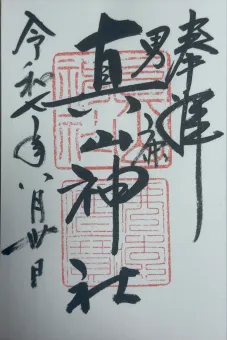 奉拝
男鹿
真山神社
令和七年八月卅日